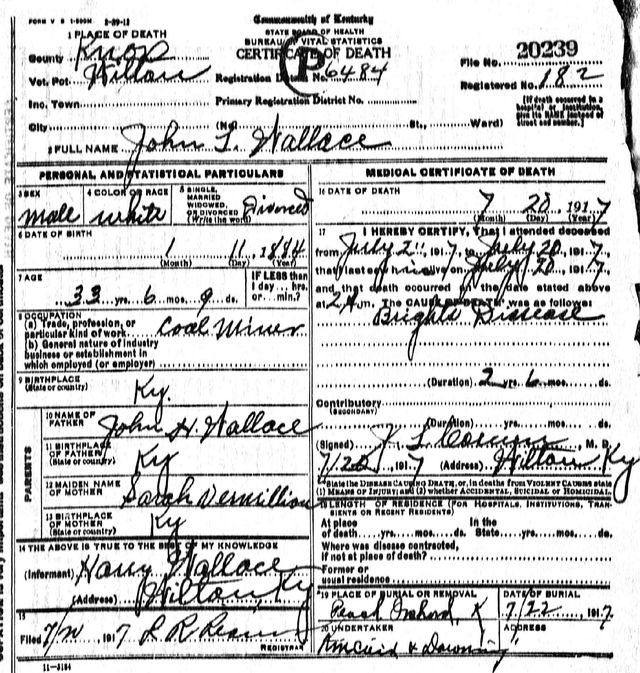 FORM V S 1-500M 2-29-12
Commonwealth of Kentucky
STATE BOARD OF HEALTH
BUREAU OF VITAL STATISTICS
CERTIFICATE OF DEATH
1 PLACE OF DEATH
County Knox
Vot. Pct. Wilton
Inc. Town
City
Registration District No. 6484
Primary Registration District No.
(No. St., Ward)
File No. 20239
Registered No. 182
[If death occurred in a hospital or institution, give its NAME instead of street and number.]
2 FULL NAME John T. Wallace
PERSONAL AND STATISTICAL PARTICULARS
3 SEX
male
4 COLOR OR RACE
white
5 SINGLE, MARRIED WIDOWED, OR DIVORCED (Write the word)
Divorced
6 DATE OF BIRTH
1 11, 1884
(Month) (Day) (Year)
7 AGE
33 yrs. 6 mos. 9 ds.
IF LESS than 1 day... hrs. or min.?
8 OCCUPATION
(a) Trade, profession, or particular kind of work Coal Miner
(b) General nature of industry business or establishment in which employed (or employer)
9 BIRTHPLACE
Ky.
PARENTS
10 NAME OF FATHER
John H. Wallace
11 BIRTHPLACE OF FATHER (State or country)
Ky
12 MAIDEN NAME OF MOTHER
Sarah Vermillion
13 BIRTHPLACE OF MOTHER (State or country)
Ky
14 THE ABOVE IS TRUE TO THE BEST OF MY KNOWLEDGE
(Informant) Harry Wallace
(Address) Wilton, Ky
15
Filed 1917
REGISTRAR
11-3184
MEDICAL CERTIFICATE OF DEATH
16 DATE OF DEATH
7 20, 1917
(Month) (Day) (Year)
17 I HEREBY CERTIFY, That I attended deceased
from July 2", 1917, to July 20, 1917,
that I last saw h alive on July 20, 1917,
and that death occurred on the date stated above
at 2 A m. The CAUSE OF DEATH was as follows:
Brights Disease
(Duration) 2 yrs. 6 mos. ds.
Contributory
(SECONDARY)
(Duration) yrs. mos. ds.
(Signed) M. D.
1917 (Address) Wilton Ky
State the DISEASE CAUSING DEATH, or, in deaths from VIOLENT CAUSES state (1) MEANS OF INJURY; and (2) whether ACCIDENTAL, SUICIDAL or HOMICIDAL.
18 LENGTH OF RESIDENCE (FOR HOSPITALS, INSTITUTIONS, TRANSIENTS OR RECENT RESIDENTS)
At place of death yrs. mos. ds. In the State yrs. mos. ds.
Where was disease contracted, if not at place of death?
Former or usual residence
19 PLACE OF BURIAL OR REMOVAL
DATE OF BURIAL
7/22, 1917
20 UNDERTAKER
ADDRESS